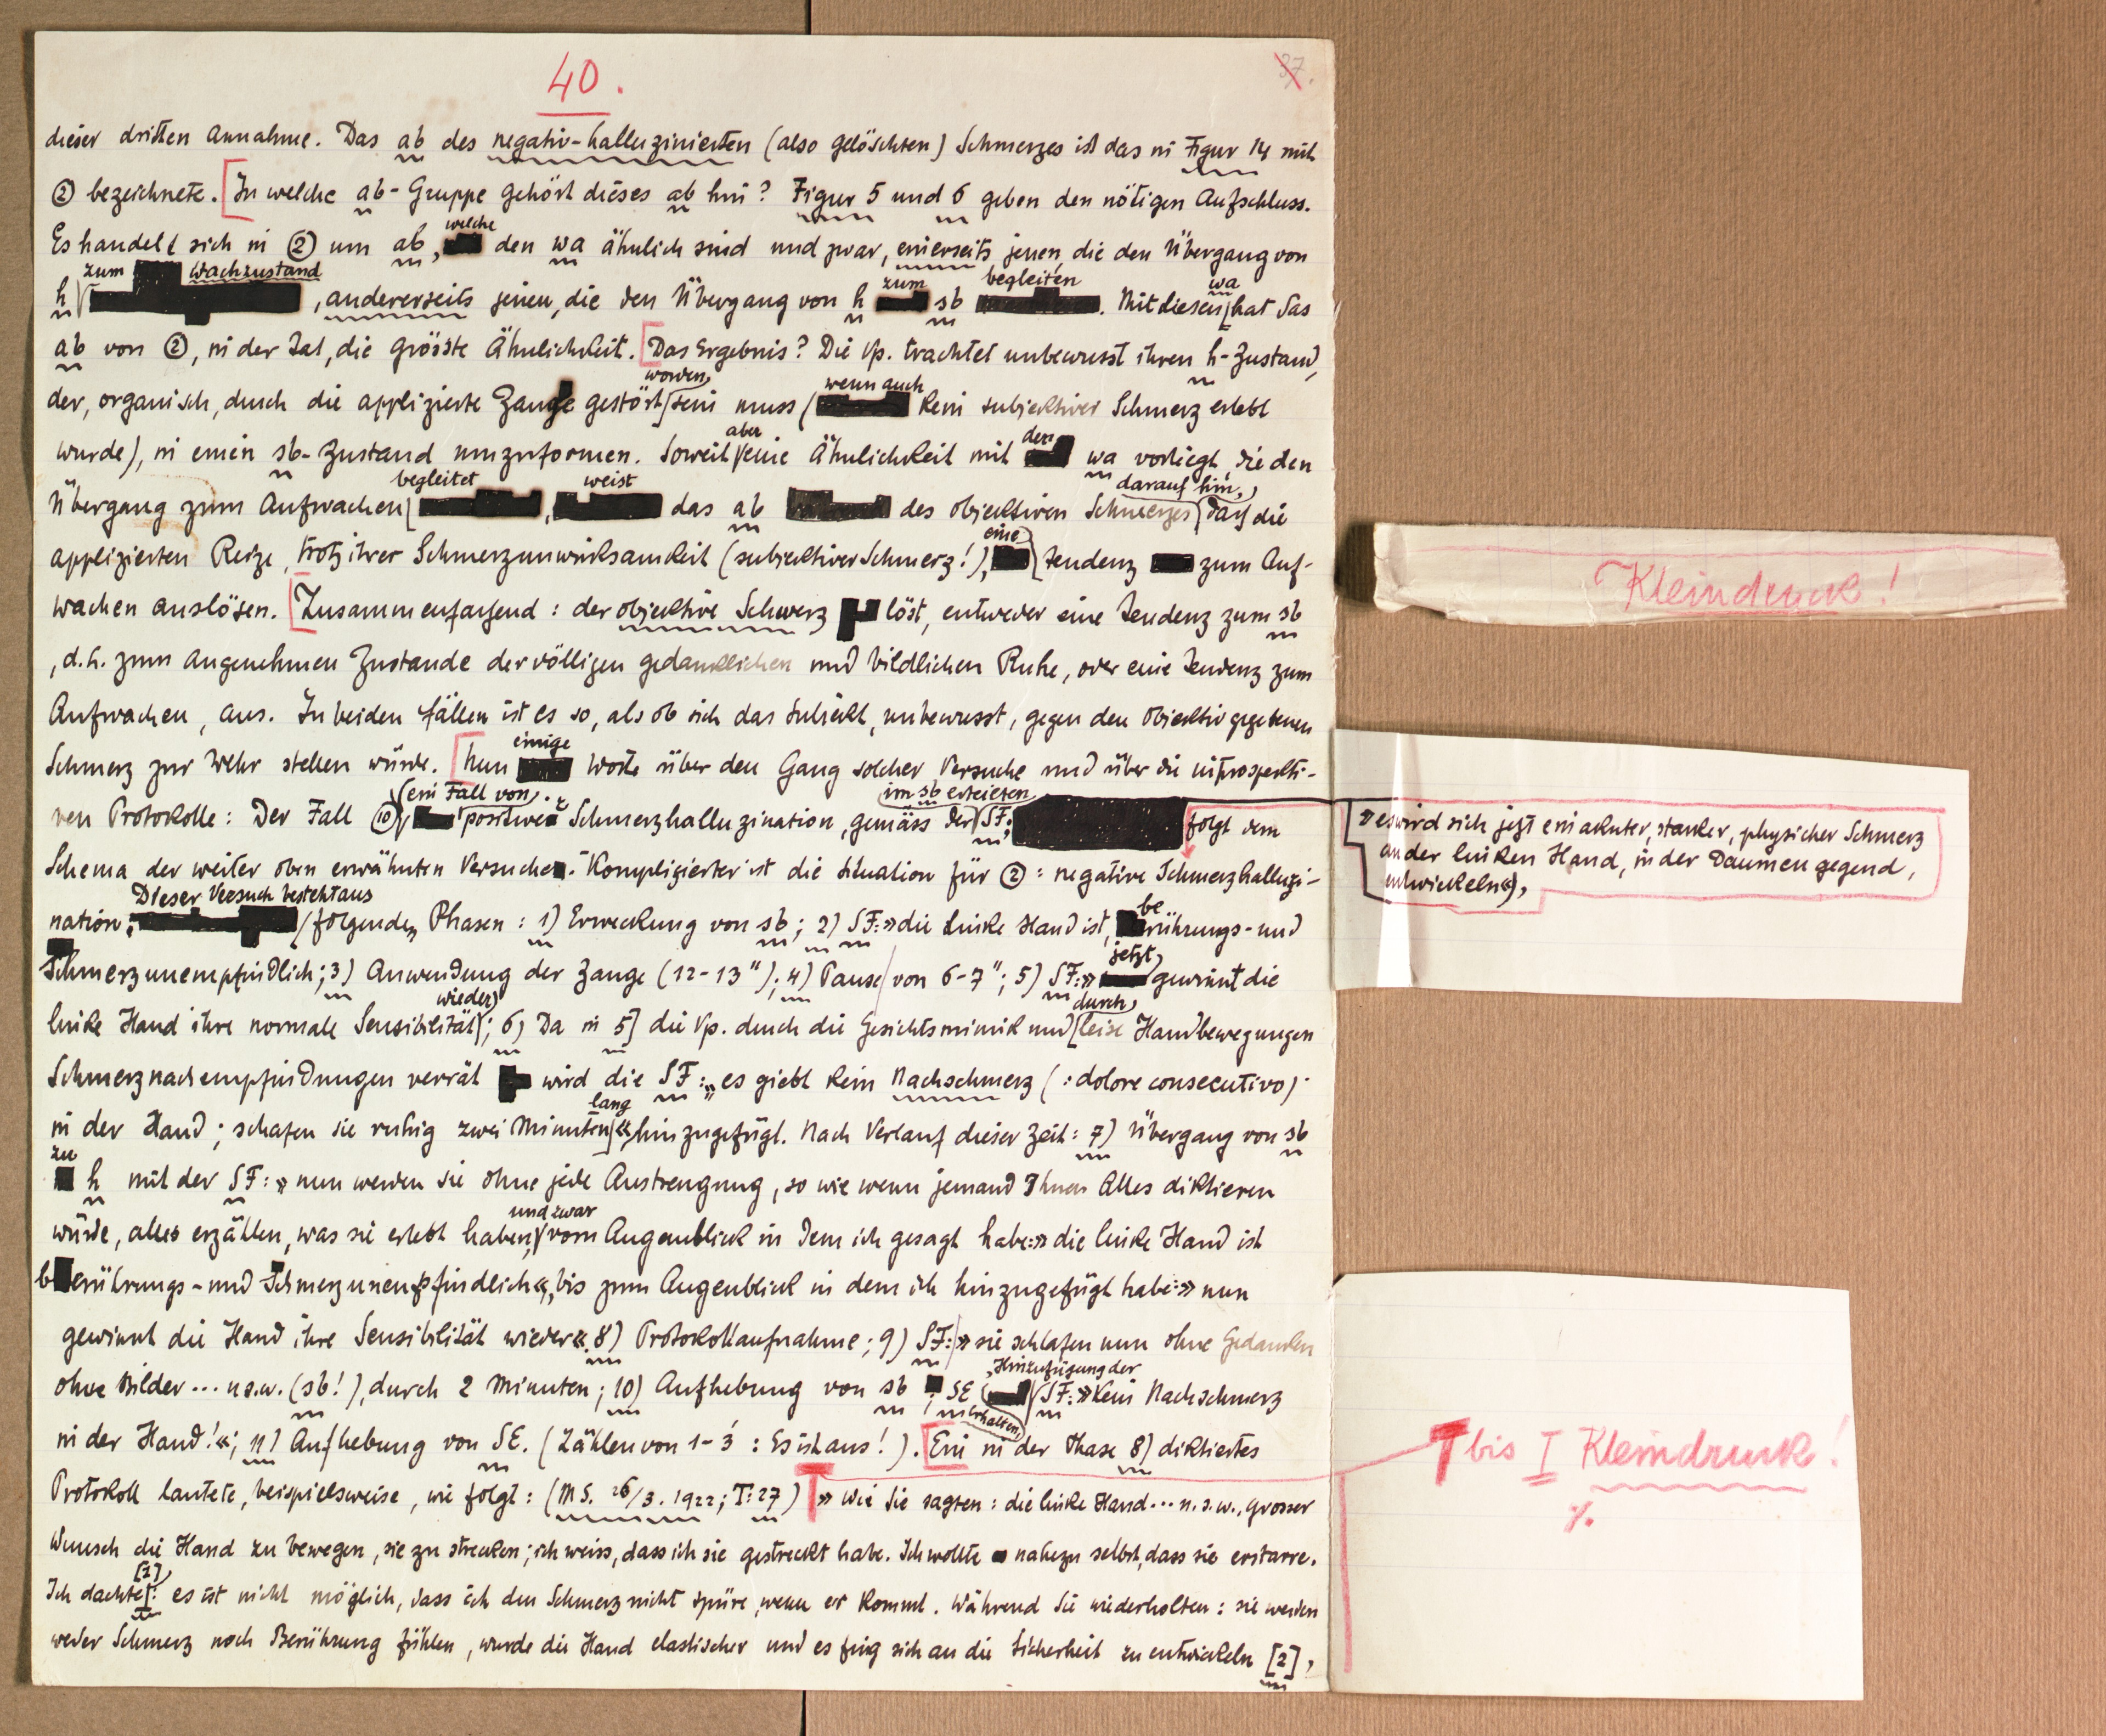 40.
37.
dieser dritten Annahme. Das ab des negativ-halluzinierten (also gelöschten) Schmerzes ist das in Figur 14 mit
② bezeichnete. [In welche ab-Gruppe gehört dieses ab hin? Figur 5 und 6 geben den nötigen Aufschluss.
Es handelt sich in ② um ab, welche den wa ähnlich sind und zwar, einerseits jenen, die den Übergang von
h zum Wachzustand, andererseits jenen, die den Übergang von h zum sb begleiten. Mit diesen wa hat das
ab von ②, in der Tat, die grösste Ähnlichkeit. [Das Ergebnis? Die Vp. trachtet unbewusst ihren h-Zustand,
der, organisch, durch die applizierte Zange gestört worden sein muss (wenn auch kein subjektiver Schmerz erlebt
wurde), in einen sb-Zustand umzuformen. Soweit aber eine Ähnlichkeit mit den wa vorliegt, die den
Übergang zum Aufwachen begleitet, weist das ab des objektiven Schmerzes darauf hin, dass die
applizierten Reize, trotz ihrer Schmerzunwirksamkeit (subjektiver Schmerz!), eine Tendenz zum Auf-
wachen auslösen. [Zusammenfassend: der objektive Schmerz löst, entweder eine Tendenz zum sb
, d.h. zum angenehmen Zustande der völligen gedanklichen und bildlichen Ruhe, oder eine Tendenz zum
Aufwachen, aus. In beiden Fällen ist es so, als ob sich das Subjekt, unbewusst, gegen den objektiv gegebenen
Schmerz zur Wehr stellen würde. [Nun einige Worte über den Gang solcher Versuche und über die introspekti-
ven Protokolle: Der Fall ⑩, ein Fall von positiver Schmerzhalluzination, gemäss der im sb erteilten SF: folgt dem
»es wird sich jetzt ein akuter, starker, physischer Schmerz
an der linken Hand, in der Daumengegend,
entwickeln«),
Schema der weiter oben erwähnten Versuche. Komplizierter ist die Situation für ②: negative Schmerzhalluzi-
nation. Dieser Versuch besteht aus folgenden Phasen: 1) Erweckung von sb; 2) SF: »die linke Hand ist, berührungs- und
Schmerzunempfindlich; 3) Anwendung der Zange (12-13"); 4) Pause von 6-7"; 5) SF: »jetzt gewinnt die
linke Hand ihre normale Sensibilität wieder; 6) Da in 5] die Vp. durch die Gesichtsmimik und durch leise Handbewegungen
Schmerznachempfindungen verrät wird die SF: „es giebt kein Nachschmerz (: dolore consecutivo)
in der Hand; schlafen sie ruhig zwei Minuten lang« hinzugefügt. Nach Verlauf dieser Zeit: 7) Übergang von sb
zu h mit der SF: » nun werden sie ohne jede Anstrengung, so wie wenn jemand Ihnen Alles diktieren
würde, alles erzählen, was sie erlebt haben, und zwar vom Augenblick in dem ich gesagt habe: » die linke Hand ist
berührungs- und Schmerzunempfindlich«, bis zum Augenblick in dem ich hinzugefügt habe: » nun
gewinnt die Hand ihre Sensibilität wieder« 8) Protokollaufnahme; 9) SF: » sie schlafen nun ohne Gedanken
ohne Bilder... u.s.w. (sb!), durch 2 Minuten; 10) Aufhebung von sb; SE erhalten, Hinzufügung der SF: »Kein Nachschmerz
in der Hand!«; 11) Aufhebung von SE. (Zählen von 1-3: Es ist aus!). [Ein in der Phase 8) diktiertes
Protokoll lautete, beispielsweise, wie folgt: (MS. 26/3. 1922; T: 27) » Wie Sie sagten: die linke Hand... u.s.w., grosser
Wunsch die Hand zu bewegen, sie zu strecken; ich weiss, dass ich sie gestreckt habe. Ich wollte nahezu selbst, dass sie erstarre.
Ich dachte [1]: es ist nicht möglich, dass ich den Schmerz nicht spüre, wenn er kommt. Während Sie wiederholten: sie werden
weder Schmerz noch Berührung fühlen, wurde die Hand elastischer und es fing sich an die Sicherheit zu entwickeln [2],
Kleindruck!
bis I Kleindruck!
%.